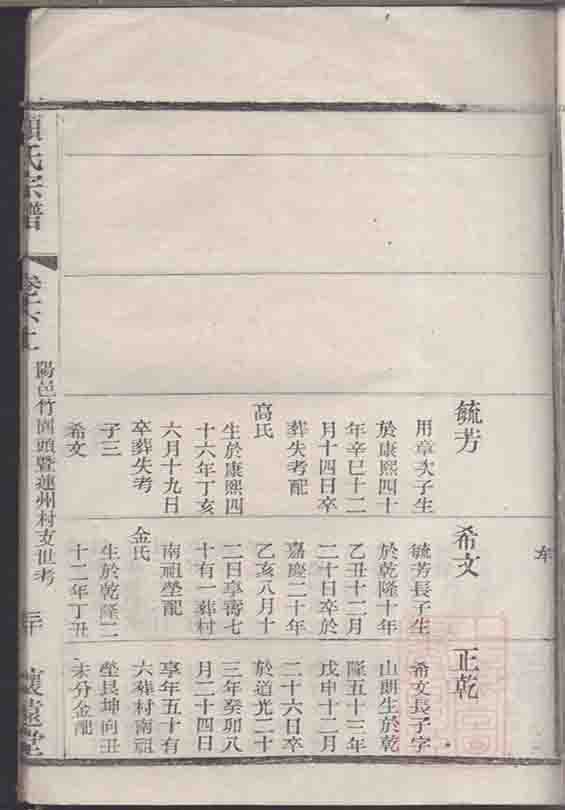 毓芳
用章次子生
於康熙四十
年辛巳十二
月十四日卒
葬失考配
高氏
生於康熙四
十六年丁亥
六月十九日
卒葬失考
子三
希文
希文
毓芳長子生
於乾隆十年
乙丑十二月
二十日卒於
嘉慶二十年
乙亥八月十
二日享壽七
十有一葬村
南祖塋配
金氏
生於乾隆二
十二年丁丑
正乾
希文長子字
山朗生於乾
隆五十三年
戊申十二月
二十六日卒
於道光二十
三年癸卯八
月二十四日
享年五十有
六葬村南祖
塋艮坤向丑
未分金配
氏宗譜
卷六上
陽邑竹園頭暨蓮州村支世考
懷遠堂